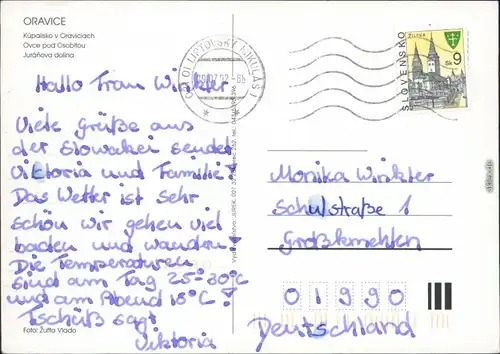 ORAVICE
Kúpalisko v Oraviciach
Ovce pod Osobitou
Juráňova dolina
Hallo Frau Winkler
Viele Grüße aus
der Slowakei sendet
Viktoria und Familie!
Das Wetter ist sehr
schön wir gehen viel
baden und wandern!
Die Temperaturen
sind am Tag 25°-30°C
und am Abend 18°C!
Tschüß sagt
Viktoria
Foto: Žuffa Vlado
LIPTOVSKÝ MIKULÁŠ 1
SLOVENSKO
ŽILINA
Sk 9
Monika Winkler
Schulstraße 1
Großkmehlen
01990
Deutschland